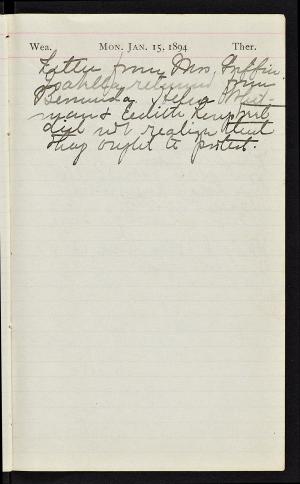 Wea. MON. JAN. 15, 1894 Ther.
Letter from Mrs. Griffin.
Isabella returned from
Bermuda. Whit-
man & Edith Kemp but
did not realize that
they ought to protest.